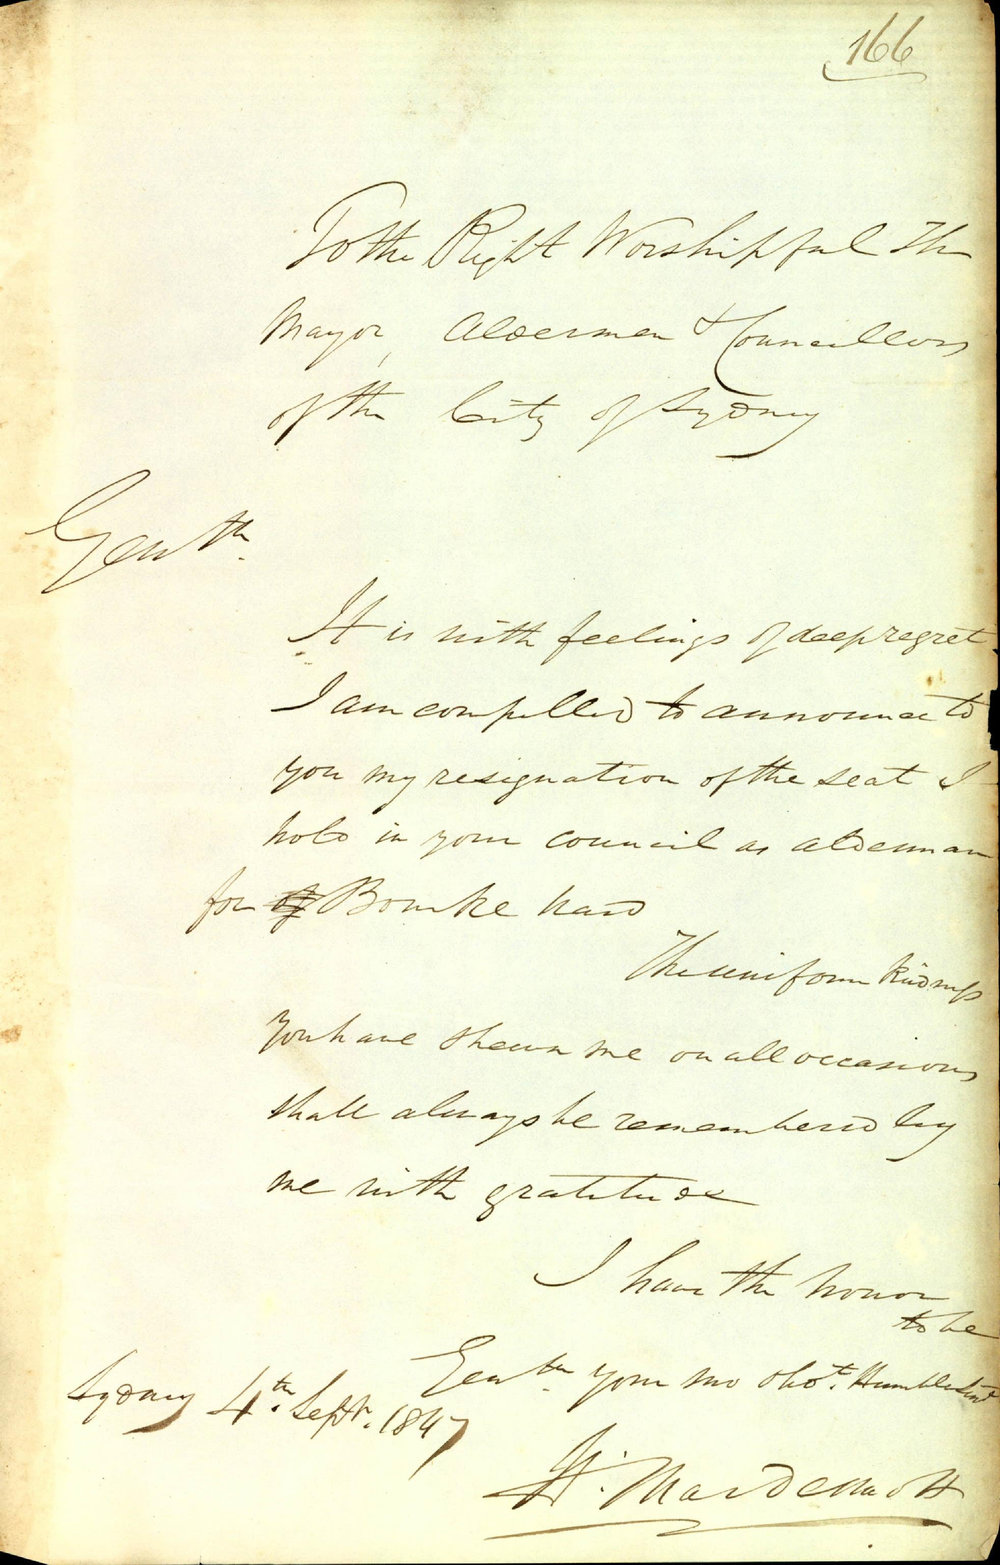 166
To the Right Worshipful The
Mayor, Aldermen & Councillors
of the City of Sydney
Gentn.
It is with feelings of deep regret
I am compelled to announce to
you my resignation of the seat I
hold in your council as alderman
for of Bourke Ward
The uniform kindness
you have shewn me on all occasions
shall always be remembered by
me with gratitude
I have the honor
to be
Gentn. your mo obt. Humble Sevt
Sydney 4th. Septr. 1847
H. MacDermott